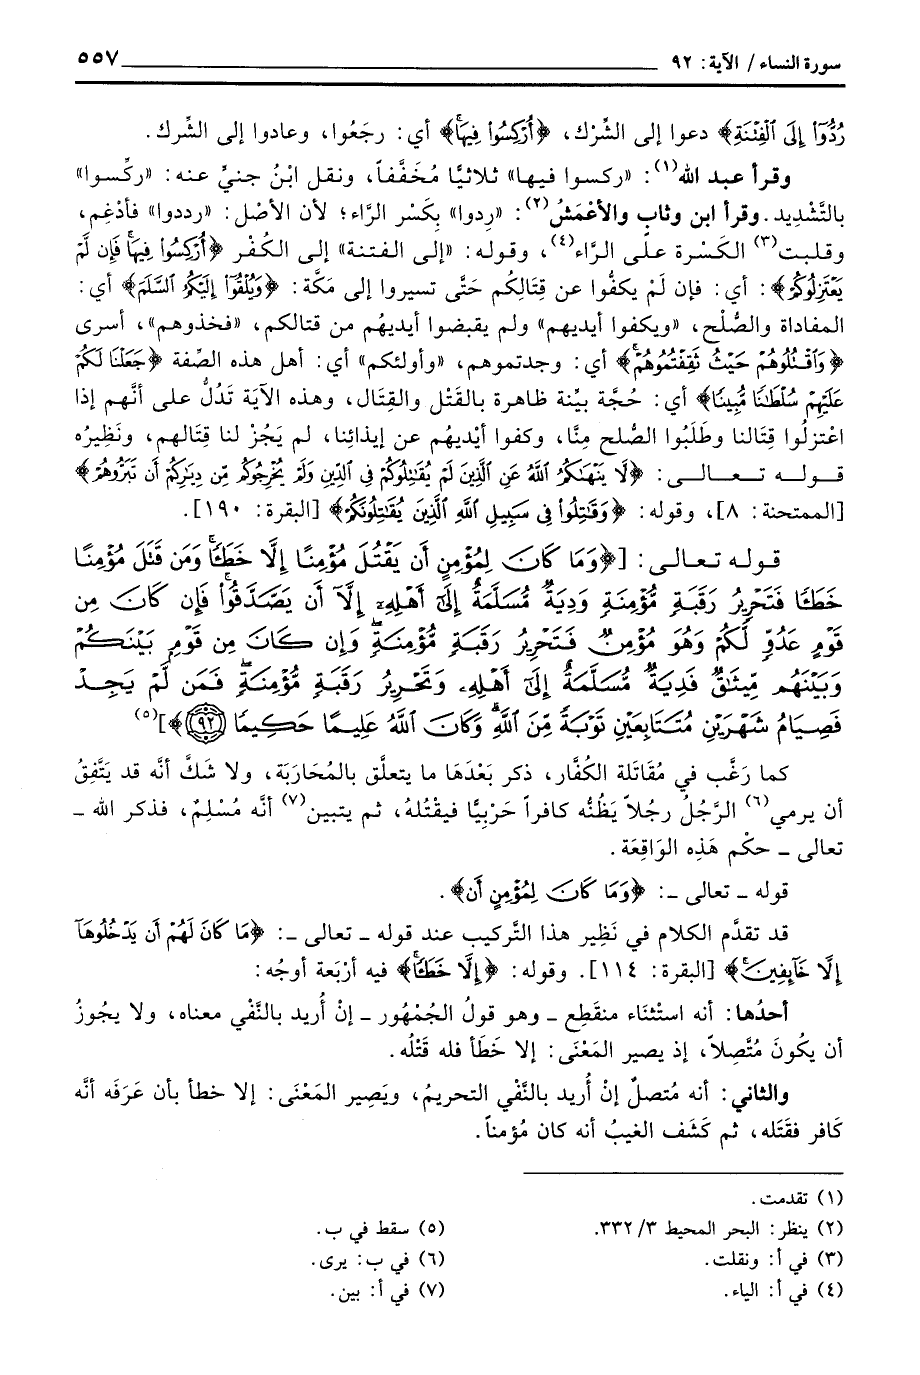 سورة النساء / الآية: ٩٢ ٥٥٧
رُدُّوٓا۟ إِلَى ٱلْفِتْنَةِ﴾ دعوا إلى الشِّرْك، ﴿أُرْكِسُوا۟ فِيهَا﴾ أي: رجَعُوا، وعادوا إلى الشِّرك.
وقرأ عبد الله(١): «ركسوا فيها» ثلاثيًّا مُخَفَّفاً، ونقل ابْنُ جنيِّ عنه: «ركِّسوا»
بالتَّشْدِيد. وقرأ ابن وثاب والأعْمَشُ(٢): «رِدوا» بِكَسْر الرَّاء؛ لأن الأصْل: «رددوا» فأدْغِم،
وقلبت(٣) الكَسْرة على الرَّاء(٤)، وقوله: «إلى الفتنة» إلى الكُفْر ﴿أُرْكِسُوا۟ فِيهَا فَإِن لَّمْ
يَعْتَزِلُوكُمْ﴾: أي: فإن لَمْ يكفُّوا عن قِتَالِكُم حَتَّى تسيروا إلى مَكَّة: ﴿وَيُلْقُوٓا۟ إِلَيْكُمُ ٱلسَّلَمَ﴾ أي:
المفاداة والصُّلْح، «ويكفوا أيديهم» ولم يقبضوا أيديهُم من قتالكم، «فخذوهم»، أسرى
﴿وَٱقْتُلُوهُمْ حَيْثُ ثَقِفْتُمُوهُمْ﴾ أي: وجدتموهم، «وأولئكم» أي: أهل هذه الصِّفة ﴿جَعَلْنَا لَكُمْ
عَلَيْهِمْ سُلْطَٰنًا مُّبِينًا﴾ أي: حُجَّة بيِّنة ظاهرة بالقَتْل والقِتَال، وهذه الآيَة تَدُلُّ على أنَّهم إذا
اعْتزلُوا قِتَالنا وطَلَبُوا الصُّلح مِنَّا، وكفوا أيْديهُم عن إيذائِنا، لم يَجُزْ لنا قِتَالهم، ونَظِيرُه
قوله تعالى: ﴿لَّا يَنْهَىٰكُمُ ٱللَّهُ عَنِ ٱلَّذِينَ لَمْ يُقَٰتِلُوكُمْ فِى ٱلدِّينِ وَلَمْ يُخْرِجُوكُم مِّن دِيَٰرِكُمْ أَن تَبَرُّوهُمْ﴾
[الممتحنة: ٨]، وقوله: ﴿وَقَٰتِلُوا۟ فِى سَبِيلِ ٱللَّهِ ٱلَّذِينَ يُقَٰتِلُونَكُمْ﴾ [البقرة: ١٩٠].
قوله تعالى: [﴿وَمَا كَانَ لِمُؤْمِنٍ أَن يَقْتُلَ مُؤْمِنًا إِلَّا خَطَـًٔا وَمَن قَتَلَ مُؤْمِنًا
خَطَـًٔا فَتَحْرِيرُ رَقَبَةٍ مُّؤْمِنَةٍ وَدِيَةٌ مُّسَلَّمَةٌ إِلَىٰٓ أَهْلِهِۦٓ إِلَّآ أَن يَصَّدَّقُوا۟ فَإِن كَانَ مِن
قَوْمٍ عَدُوٍّ لَّكُمْ وَهُوَ مُؤْمِنٌ فَتَحْرِيرُ رَقَبَةٍ مُّؤْمِنَةٍ وَإِن كَانَ مِن قَوْمٍ بَيْنَكُمْ
وَبَيْنَهُم مِّيثَٰقٌ فَدِيَةٌ مُّسَلَّمَةٌ إِلَىٰٓ أَهْلِهِۦ وَتَحْرِيرُ رَقَبَةٍ مُّؤْمِنَةٍ فَمَن لَّمْ يَجِدْ
فَصِيَامُ شَهْرَيْنِ مُتَتَابِعَيْنِ تَوْبَةً مِّنَ ٱللَّهِ وَكَانَ ٱللَّهُ عَلِيمًا حَكِيمًا (٩٢)﴾](٥)
كما رَغَّب في مُقَاتَلة الكُفَّار، ذكر بَعْدَهَا ما يتعلَّق بالمُحَارَبَة، ولا شكَّ أنَّه قد يَتَّفِقُ
أن يرمي(٦) الرَّجُلُ رجُلاً يَظُنُّه كافراً حَرْبِيًّا فيقْتُلهُ، ثم يتبين(٧) أنَّه مُسْلِمٌ، فذكر الله ـ
تعالى ـ حكْم هَذِه الوَاقِعَة.
قوله ـ تعالى ـ: ﴿وَمَا كَانَ لِمُؤْمِنٍ أَن﴾.
قد تقدَّم الكلام في نَظِير هذا التَّركيب عند قوله ـ تعالى ـ: ﴿مَا كَانَ لَهُمْ أَن يَدْخُلُوهَآ
إِلَّا خَآئِفِينَ﴾ [البقرة: ١١٤]. وقوله: ﴿إِلَّا خَطَـًٔا﴾ فيه أرْبَعة أوجُه:
أحدُها: أنه استْثنَاء منقَطِع ـ وهو قولُ الجُمْهُور ـ إنْ أُريد بالنَّفْي معناه، ولا يجُوزُ
أن يكُونَ مُتَّصِلاً، إذ يصير المَعْنَى: إلا خَطَأ فله قَتْلُه.
والثاني: أنه مُتصلٌ إنْ أُريد بالنَّفْي التحريمُ، ويَصِير المَعْنَى: إلا خطأ بأن عَرَفَه أنَّه
كَافر فقَتَله، ثم كَشَف الغيبُ أنه كان مُؤمناً.
(١) تقدمت.
(٢) ينظر: البحر المحيط ٣/ ٣٣٢.
(٣) في أ: ونقلت.
(٤) في أ: الياء.
(٥) سقط في ب.
(٦) في ب: يرى.
(٧) في أ: بين.